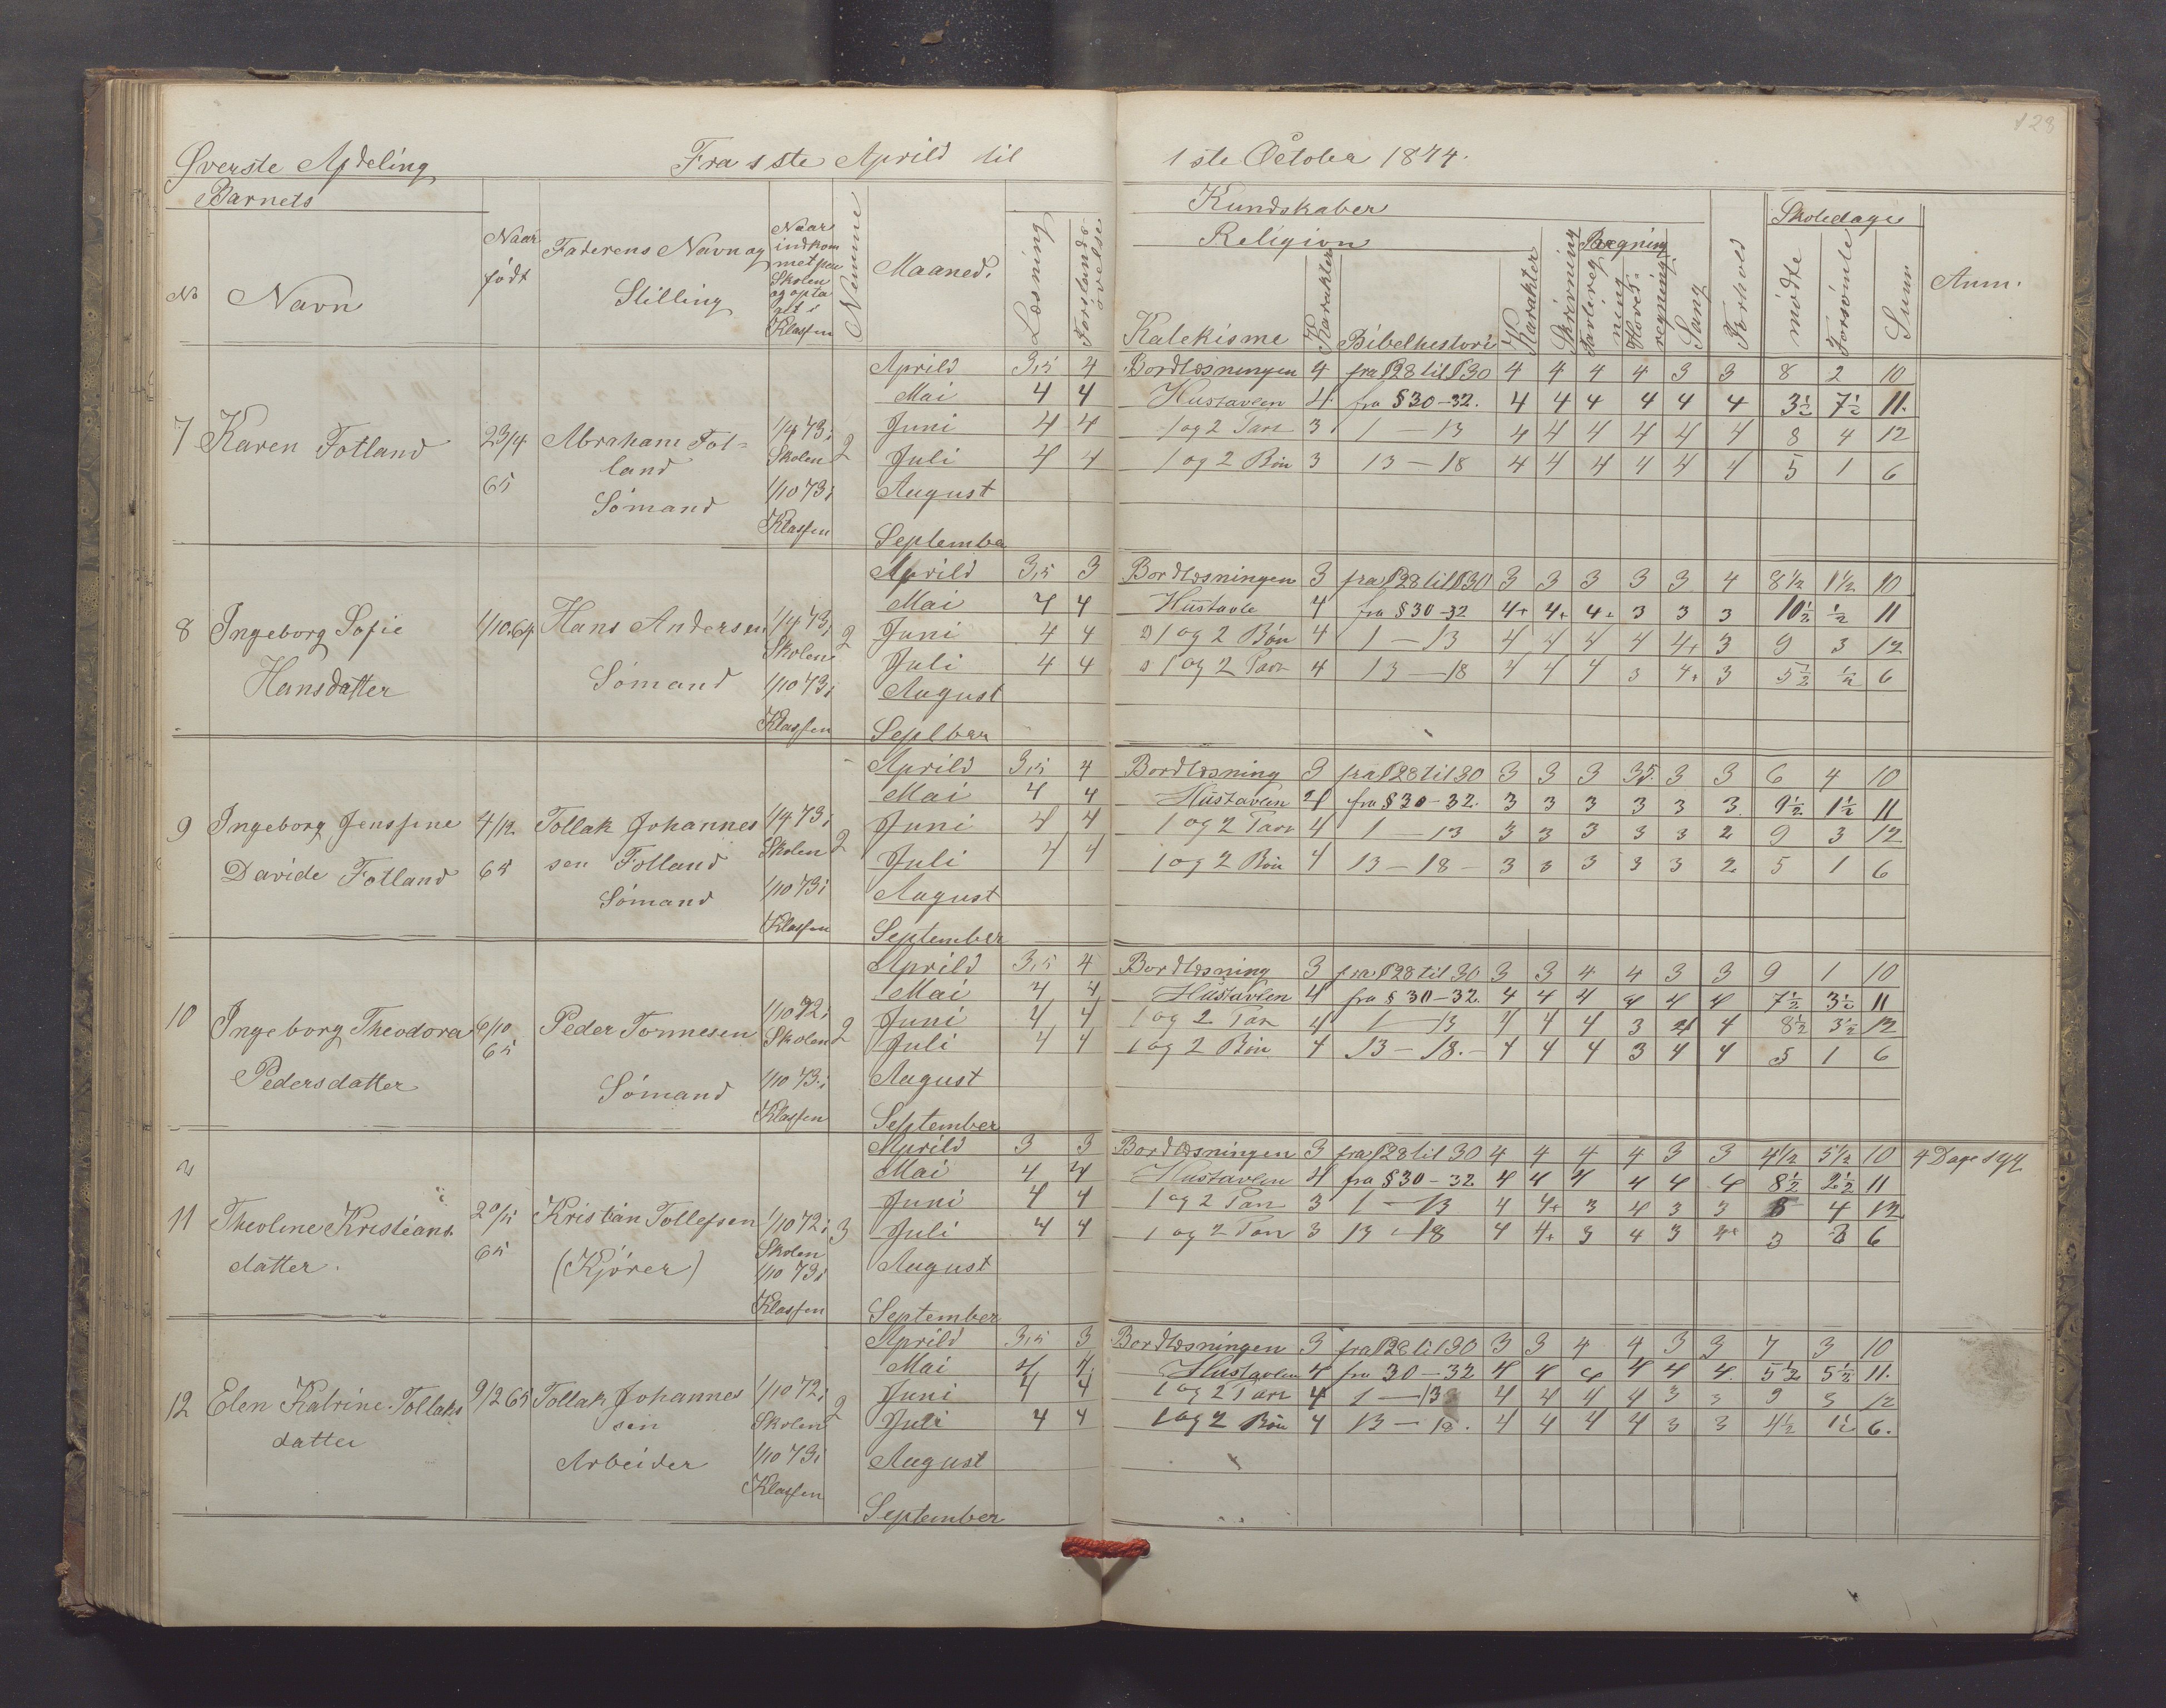 128
Øverste Afdeling Fra 1ste Aprild til 1ste October 1874.
Barnets Kundskaber Skoledage
No Navn Naar født Faderens Navn og Stilling Naar indkommet paa Skolen og optaget i Klassen Numme Maaned. Læsning Forstands øvelse Religion Katekisme Karakter Bibelhestori Karakter Skrivning Tavlregning Hovedregning Regning Sang Forhold mødte Forsømte Sum Anm.
7 Karen Fotland 23/4 65 Abraham Fotland Sømand 1/4 73 i Skolen 1/10 73 i Klassen 2
Aprild 3,5 4 Bordlæsningen 4 fra § 28 til § 30 4 4 4 4 3 3 8 2 10
Mai 4 4 Hustavlen 4 fra § 30-32. 4 4 4 4 4 4 3½ 7½ 11.
Juni 4 4 1 og 2 Part 3 1 - 13 4 4 4 4 4 4 8 4 12
Juli 4 4 1 og 2 Bøn 3 13 - 18 4 4 4 4 4 4 5 1 6
August
September
8 Ingeborg Sofie Hansdatter 1/10 64 Hans Andersen Sømand 1/4 73 i Skolen 1/10 73 i Klassen 2
Aprild 3,5 3 Bordlæsningen 3 fra § 28 til § 30 3 3 3 3 3 4 8½ 1½ 10
Mai 4 4 Hustavle 4 fra § 30-32 4+ 4+ 4+ 3 3 3 10½ ½ 11
Juni 4 4 1 og 2 Bøn 4 1 - 13 4 4 4 4 4+ 3 9 3 12
Juli 4 4 1 og 2 Part 4 13 - 18 4 4 4 3 4+ 3 5½ ½ 6
August
Septbar
9 Ingeborg Jenssine Davide Fotland 4/12 65 Tollak Johannessen Fotland Sømand 1/4 73 i Skolen 1/10 73 i Klassen 2
Aprild 3,5 4 Bordlæsning 3 fra § 28 til 30 3 3 3 35. 3 3 6 4 10
Mai 4 4 Hustavlen 4 fra § 30-32. 3 3 3 3 3 3 9½ 1½ 11
Juni 4 4 1 og 2 Part 4 1 - 13 3 3 3 3 3 2 9 3 12
Juli 4 4 1 og 2 Bøn 4 13 - 18 - 3 3 3 3 3 2 5 1 6
August
September
10 Ingeborg Theodora Pedersdatter 6/10 65 Peder Tønnesen Sømand 1/10 72 i Skolen 1/10 73 i Klassen 2
Aprild 3,5 4 Bordlæsning 3 fra § 28 til 30 3 3 4 4 3 3 9 1 10
Mai 4 4 Hustavlen 4 fra § 30-32. 4 4 4 4 4 4 7½ 3½ 11
Juni 4 4 1 og 2 Part 4 1 - 13 4 4 4 3 4 4 8½ 3½ 12
Juli 4 4 1 og 2 Bøn 4 13 - 18. - 4 4 4 3 4 4 5 1 6
August
September
11 Theoline Kristiansdatter. 20/5 65 Kristian Tollefsen (Kjører) 1/10 72 i Skolen 1/10 73 i Klassen 3
Aprild 3 3 Bordlæsningen 3 fra § 28 til 30 4 4 4 4 3 3 4½ 5½ 10 4 Dage syg
Mai 4 4 Hustavlen 4 fra § 30-32 4 4 4 4 4 4 8½ 2½ 11
Juni 4 4 1 og 2 Part 3 1 - 13 4 4+ 3 4 3 3 8 4 12
Juli 4 4 1 og 2 Part 3 13 - 18 4 4+ 3 4 3 3 3 6
August
September
12 Elen Katrine Tollaksdatter 9/12 65 Tollak Johannessen Arbeider 1/10 72 i Skolen 1/10 73 i Klassen 2
Aprild 3,5 3 Bordlæsningen 3 fra § 28 til 30 3 3 4 4 3 3 7 3 10
Mai 4 4 Hustavlen 4 fra 30-32 4 4 4 4 4 4. 5½ 5½ 11.
Juni 4 4 1 og 2 Part 4 1 - 13 4 4 4 4 3 3 9 3 12
Juli 4 4 1 og 2 Bøn 4 13 - 18. 4 4 4 4 3 3 4½ 1½ 6.
August
September